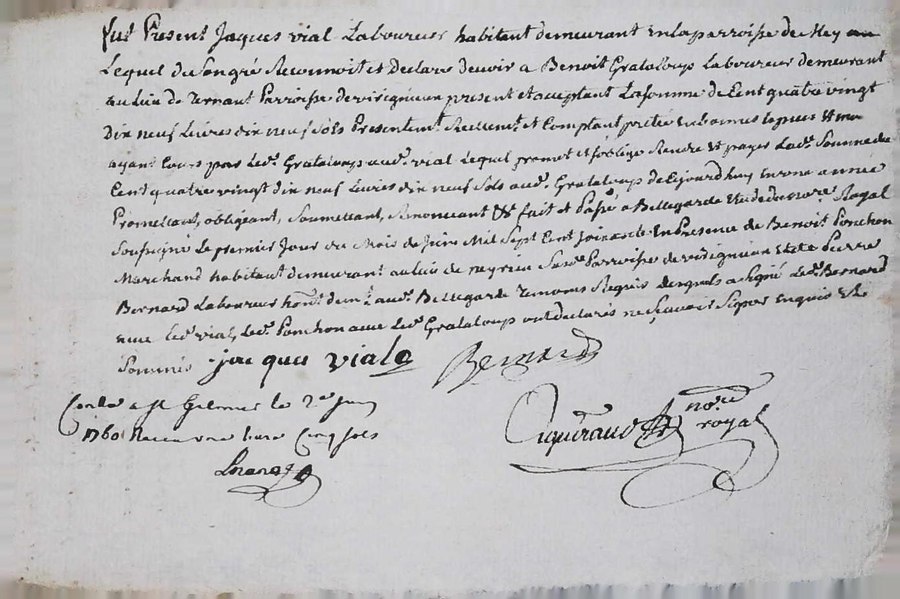 fut Present Jaques vial Laboureur habitant demeurant en la parroisse de
Lequel de son gré Reconnoit et Declare devoir a Benoit Grataloup Laboureur demeurant
au Lieu de Ternant Parroisse de virigneux present et acceptant La somme de Cent quatre vingt
Dix neuf Livres dix neuf sols Presentemt. Reellemt. et Comptant pretée en bonnes especes
ayant Cours par Ledt. Grataloup audt. vial Lequel promet et s'oblige Rendre et payer Ladt. Somme de
Cent quatre vingt dix neuf Livres dix neuf Sols audt. Grataloup de Cejourdhuy en une année
Promettant, obligeant, Soumettant, Renonceant &c fait et Passé a Bellegarde Etude du nore. Royal
Soussigné Le premier Jour du Mois de Juin Mil Sept Cent soixante En Presence de Benoit Ponchon
Marchand habitant demeurant au Lieu de neyrieu Susde. Parroisse de virigneux et de Pierre
Bernard Laboureur habt. demt. audt. Bellegarde Temoins Requis desquels a Signé Ledt. Bernard
avec Ledt. vial, Ledt. Ponchon avec Ledt. Grataloup ont declarés ne sçavoir Signer Enquis &
Sommés jaques vial
Bernard
Conllé a St Gelmier le 2e juin
1760 Recu une livre Cinq sols
nore
royal